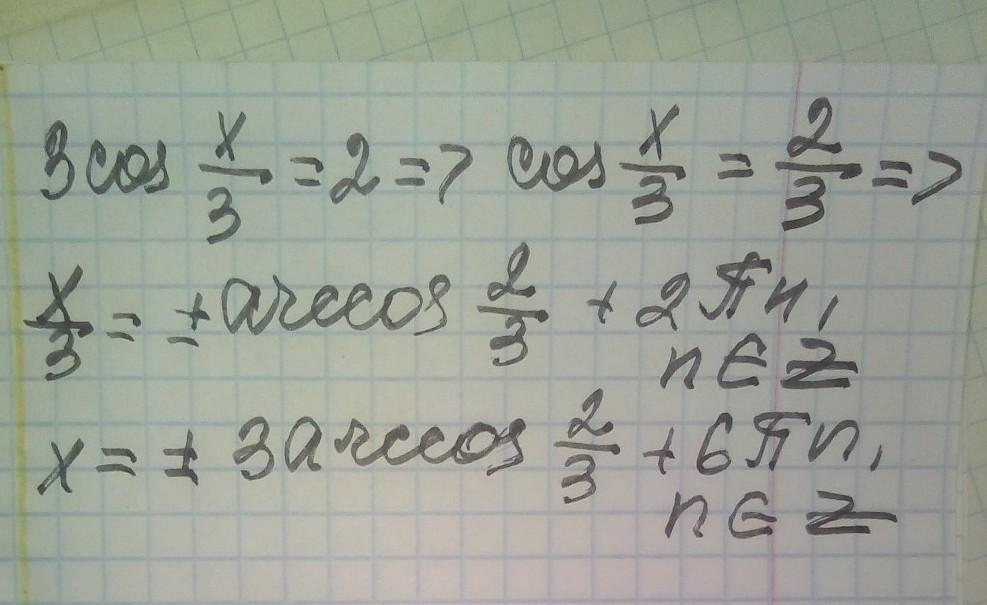 3cos x/3 = 2 => cos x/3 = 2/3 =>
x/3 = ± arccos 2/3 + 2πn,
n ∈ Z
x = ± 3arccos 2/3 + 6πn,
n ∈ Z